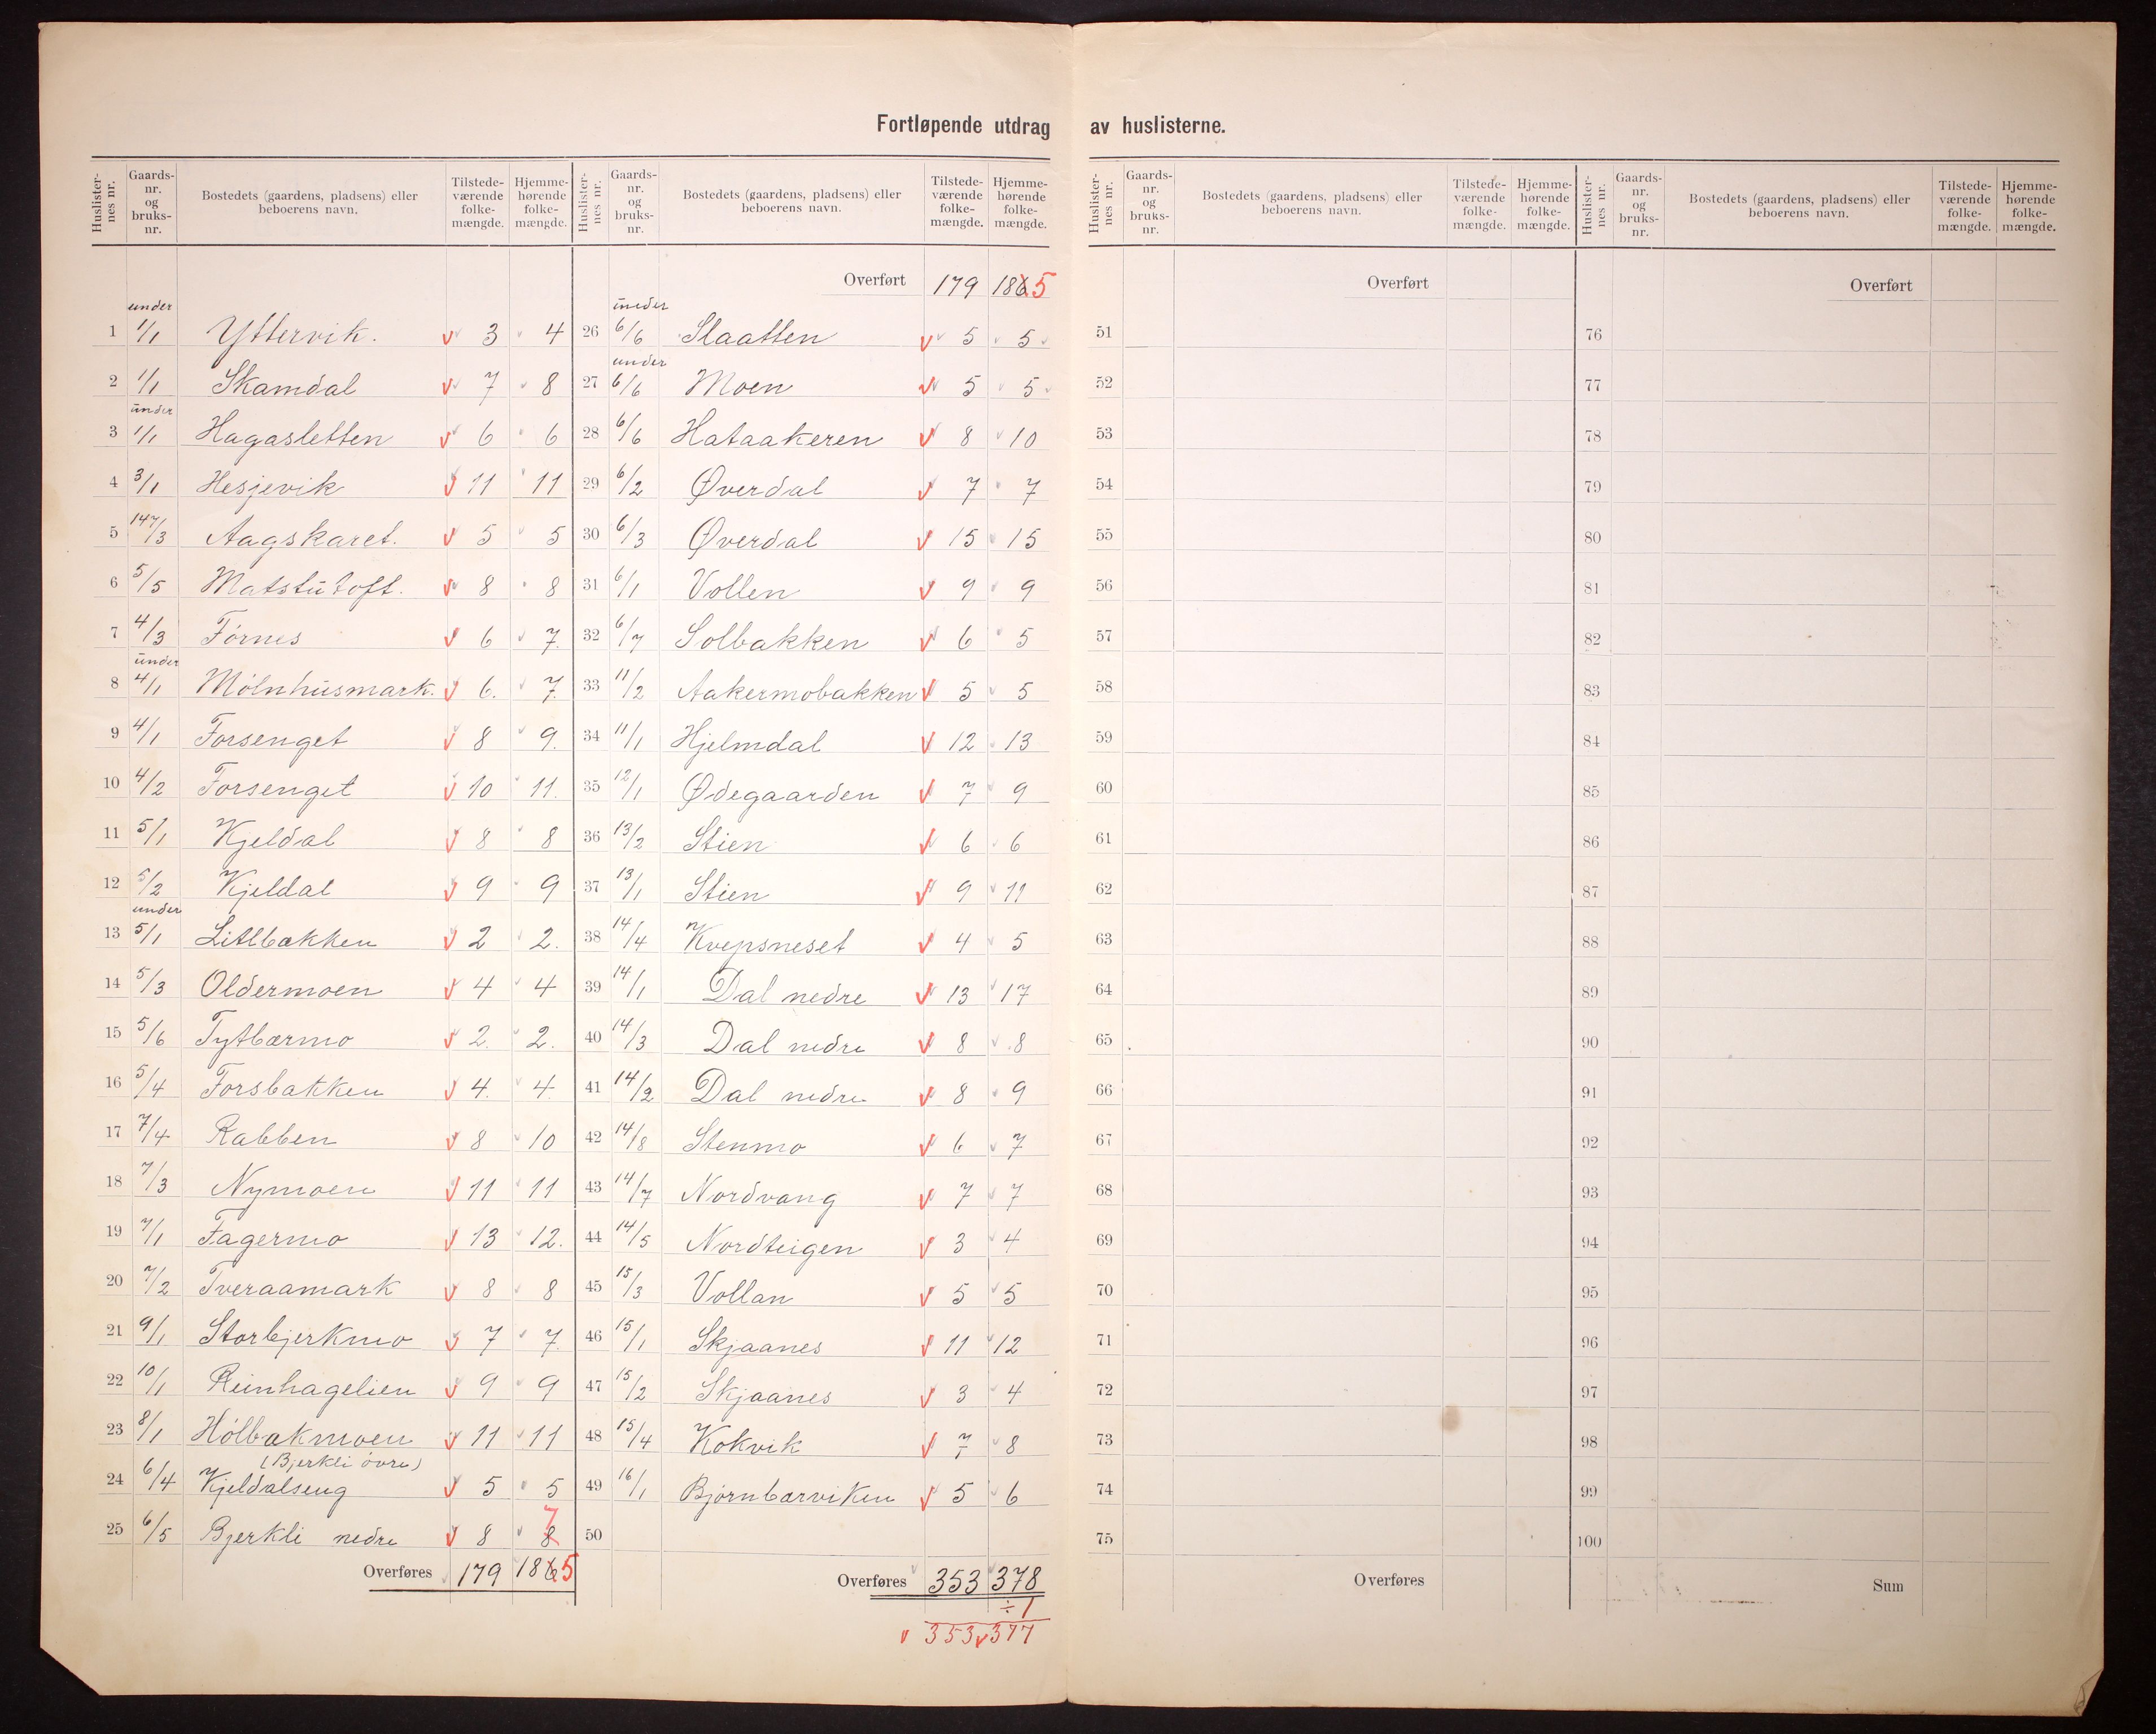 Fortløpende utdrag av huslisterne.
Huslister-nes nr. | Gaards-nr. og bruks-nr. | Bostedets (gaardens, pladsens) eller beboerens navn. | Tilstede-værende folke-mængde. | Hjemme-hørende folke-mængde.
1 under 1/1 Yttervik. 3 4
2 1/1 Skamdal 7 8
3 under 1/1 Hagasletten 6 6
4 3/1 Hesjevik 11 11
5 147/3 Aagskaret. 5 5
6 5/5 Matstutoft. 8 8
7 4/3 Fórnes 6 7.
8 under 4/1 Mólnhusmark. 6. 7.
9 4/1 Forsenget 8 9.
10 4/2 Forsenget 10 11.
11 5/1 Kjeldal 8 8
12 5/2 Kjeldal 9 9
13 under 5/1 Litlbakken 2 2.
14 5/3 Oldermoen 4 4
15 5/6 Tytbærmo 2. 2.
16 5/4 Forsbakken 4. 4.
17 7/4 Rabben 8 10
18 7/3 Nymoen 11 11
19 7/1 Fagermo 13 12.
20 7/2 Tveraamark 8 8
21 9/1 Storbjerkmo 7 7.
22 10/1 Reinhagelien 9 9
23 8/1 Hólbakmoen 11 11
(Bjerkli óvre)
24 6/4 Kjeldalseng 5 5
25 6/5 Bjerkli nedre 8 8 7
Overføres 179 186 5
Huslister-nes nr. | Gaards-nr. og bruks-nr. | Bostedets (gaardens, pladsens) eller beboerens navn. | Tilstede-værende folke-mængde. | Hjemme-hørende folke-mængde.
Overført 179 186 5
26 under 6/6 Slaatten 5 5
27 under 6/6 Moen 5 5
28 6/6 Hataakeren 8 10
29 6/2 Øverdal 7 7
30 6/3 Øverdal 15 15
31 6/1 Vollen 9 9
32 6/7 Solbakken 6 5
33 11/2 Aakermobakken 5 5
34 11/1 Hjelmdal 12 13
35 12/1 Ødegaarden 7 9
36 13/2 Stien 6 6
37 13/1 Stien 9 11
38 14/4 Kvepsneset 4 5
39 14/1 Dal nedre 13 17
40 14/3 Dal nedre 8 8
41 14/2 Dal nedre 8 9
42 14/8 Stenmo 6 7
43 14/7 Nordvang 7 7
44 14/5 Nordteigen 3 4
45 15/3 Vollan 5 5
46 15/1 Skjaanes 11 12
47 15/2 Skjaanes 3 4
48 15/4 Kokvik 7 8
49 16/1 Bjórnbærviken 5 6
50
Overføres 353 378
÷1
353 377
Huslister-nes nr. | Gaards-nr. og bruks-nr. | Bostedets (gaardens, pladsens) eller beboerens navn. | Tilstede-værende folke-mængde. | Hjemme-hørende folke-mængde.
Overført
51
52
53
54
55
56
57
58
59
60
61
62
63
64
65
66
67
68
69
70
71
72
73
74
75
Overføres
Huslister-nes nr. | Gaards-nr. og bruks-nr. | Bostedets (gaardens, pladsens) eller beboerens navn. | Tilstede-værende folke-mængde. | Hjemme-hørende folke-mængde.
Overført
76
77
78
79
80
81
82
83
84
85
86
87
88
89
90
91
92
93
94
95
96
97
98
99
100
Sum